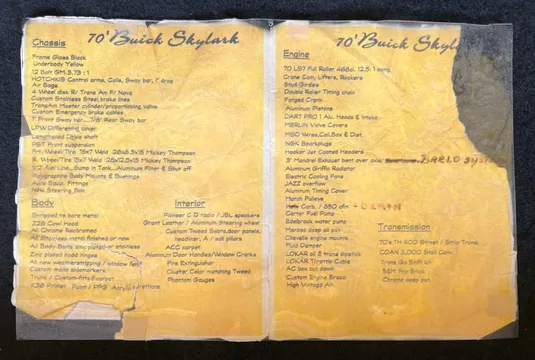 70' Buick Skylark
Chassis
Frame Gloss Black
Underbody Yellow
12 Bolt GM 3.73 : 1
HOTCHKIS Control arms, Coils, Sway bar, 1" drop
Air Bags
4 Wheel disk R/ Trans Am F/ Nova
Custom Stainless Steel brake lines
TransAm Master cylinder/proportioning valve
Custom Emergency brake cables
1" Front Sway bar....7/8" Rear Sway bar
LPW Differential cover
Lengthened Drive shaft
PST Front suspension
Frt. Wheel/Tire 15x7 Weld 26x8.5x15 Mickey Thompson
R. Wheel/Tire 15x7 Weld 26x12.5x15 Mickey Thompson
1/2" Fuel Line...Sump in Tank...Aluminum Filter & Shut off
Polygraphite Body Mounts & Bushings
Fittings
NPN Steering Box
Body
Scraped to bare metal
228 Cowl Hood
All Chrome Rechromed
All Stainless metal finished or new
All Body Bolts zinc plated or stainless
Zinc plated hood hinges
All new weatherstripping / window felt
Custom made sidemarkers
Trunk / Custom-fitts Carpet
Paint / PPG
Interior
Pioneer C D radio / JBL speakers
Grant Leather / Aluminum Steering wheel
Custom Tweed Seats,door panels,
headliner, A / sail pillars
ACC carpet
Aluminum Door Handles/Window Cranks
Fire Extinguisher
Cluster Color matching Tweed
Phantom Gauges
70' Buick Skyl
Engine
70 LS7 Full Roller 468ci. 12.5: 1 comp.
Crane Cam, Lifters, Rockers
Stud Girdles
Double Roller Timing chain
Forged Crank
Aluminum Pistons
DART PRO 1 Alu. Heads & Intake
MERLIN Valve Covers
MSD Wires,Coil,Box & Dist.
NGK Sparkplugs
Hooker Jet Coated Headers
3" Mandrel Exhaust bent over axle
Aluminum Griffin Radiator
Electric Cooling Fans
JAZZ overflow
Aluminum Timing Cover
March Pulleys
Carb. / 850 cfm
Carter Fuel Pump
Edelbrock water pump
Moroso deep oil pan
Chevelle engine mounts
Fluid Damper
LOKAR oil & trans dipstick
LOKAR Throttle Cable
AC box cut down
Custom Engine Brace
High Voltage Alt.
Transmission
70's TH 400 Street / Strip Trans.
COAN 3,000 Stall Conv.
Trans Go Shift kit
B&M Pro Stick
Chrome deep pan